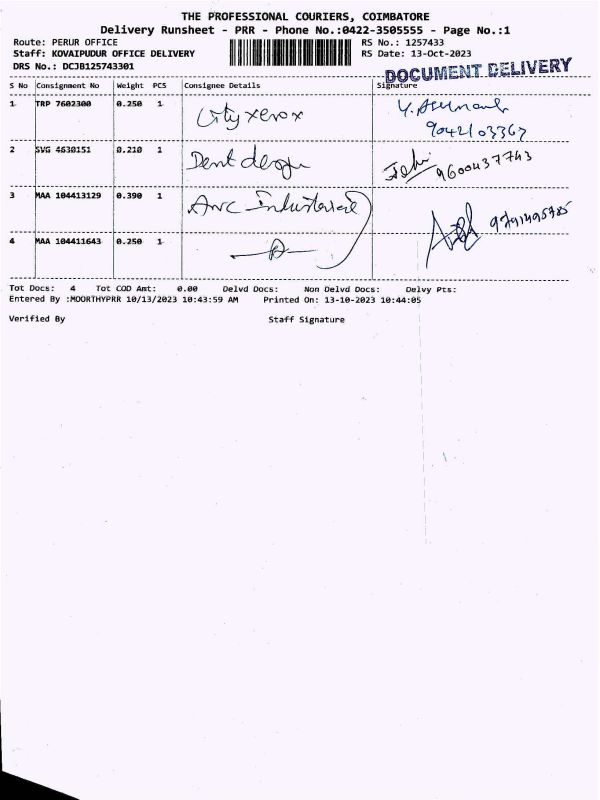 THE PROFESSIONAL COURIERS, COIMBATORE
Delivery Runsheet - PRR - Phone No.:0422-3505555 - Page No.:1
Route: PERUR OFFICE RS No.: 1257433
Staff: KOVAIPUDUR OFFICE DELIVERY RS Date: 13-Oct-2023
DRS No.: DCJB125743301
DOCUMENT DELIVERY
S No Consignment No Weight PCS Consignee Details Signature
1 TRP 7602300 0.250 1 City xerox
9042103367
2 SVG 4630151 0.210 1 Dent design 9600437743
3 MAA 104413129 0.390 1
4 MAA 104411643 0.250 1
Tot Docs: 4 Tot COD Amt: 0.00 Delvd Docs: Non Delvd Docs: Delvy Pts:
Entered By :MOORTHYPRR 10/13/2023 10:43:59 AM Printed On: 13-10-2023 10:44:05
Verified By Staff Signature